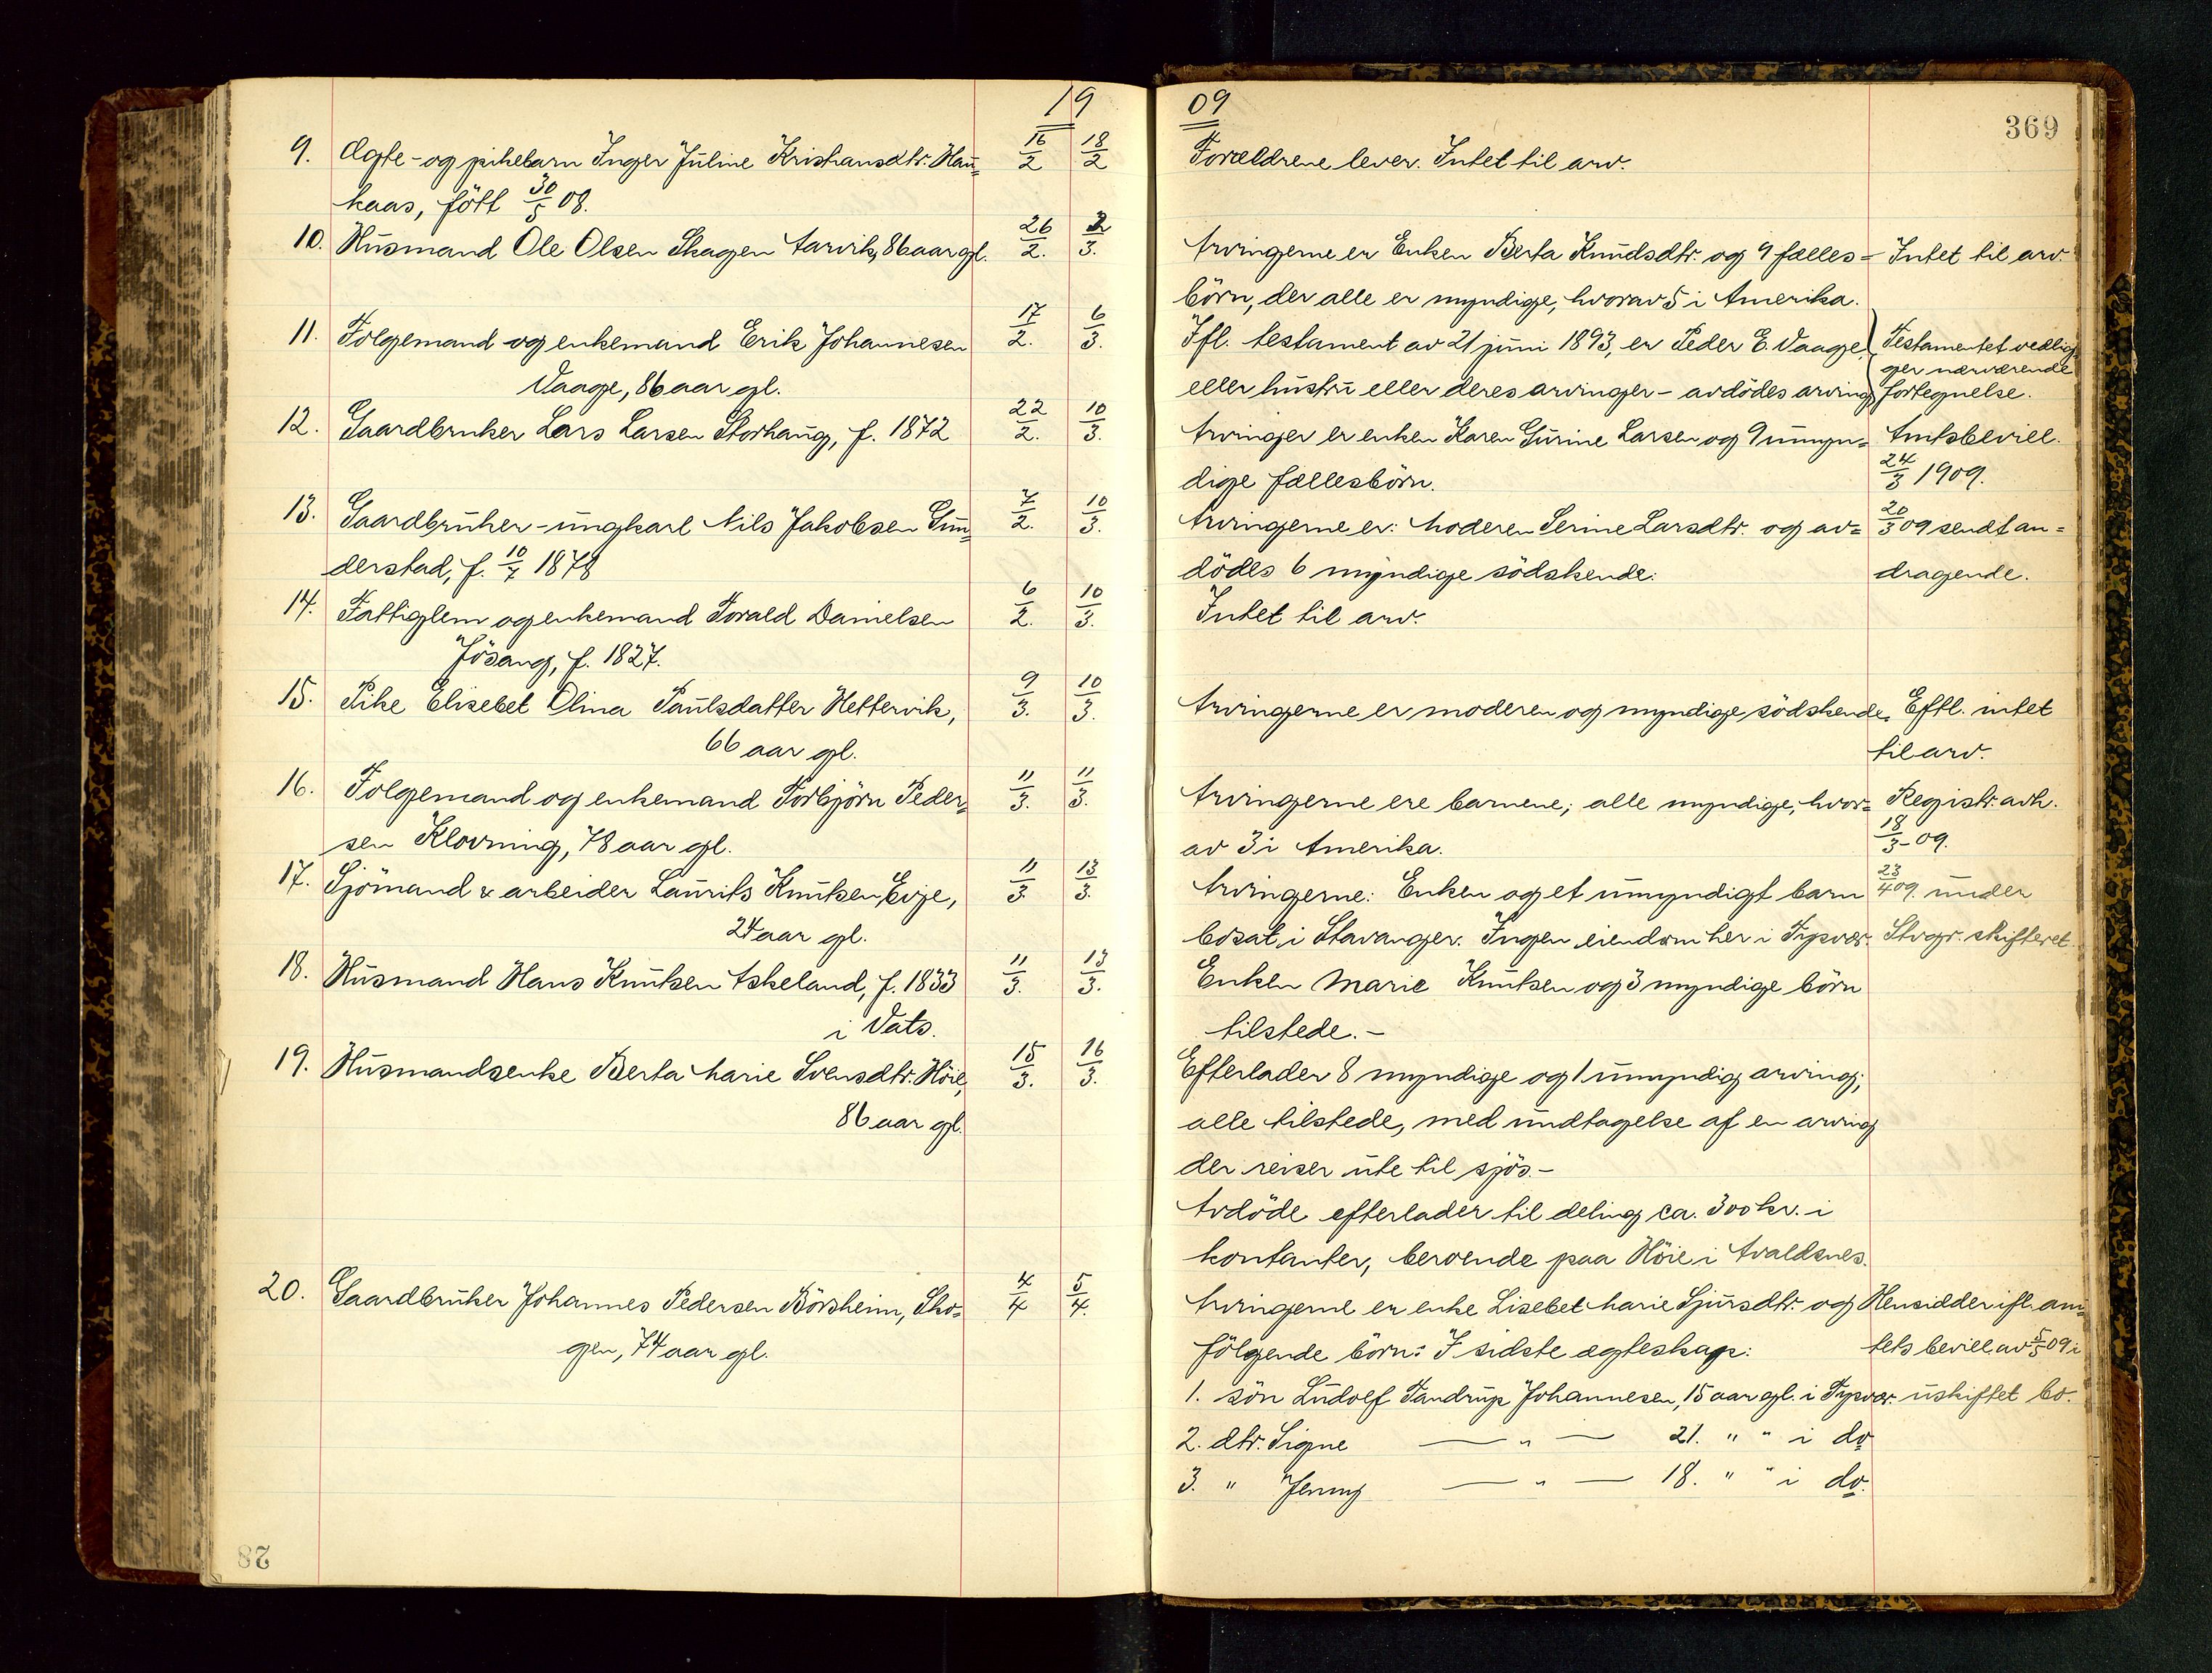 19 09
369
9. Ægte- og pikebarn Inger Juline Kristiansdtr. Hau= 16/2 18/2 Forældrene lever. Intet til arv.
kaas, fött 30/5 08.
10. Husmand Ole Olsen Skagen Aarvik, 86 aar gl. 26/2. 2/3. Arvingerne er Enken Berta Knudsdtr. og 9 fælles= Intet til arv.
börn, der alle er myndige, hvorav 5 i Amerika.
11. Folgemand og enkemand Erik Johannesen 17/2. 6/3. Ifl. testament av 21 juni 1893, er Peder E. Vaage, Testamentet vedlig=
ger nærværende
Vaage, 86 aar gl. eller hustru eller deres arvinger – avdödes arving, fortegnelse.
12. Gaardbruker Lars Larsen Storhaug, f. 1872 22/2. 10/3. Arvinger er enken Karen Gurine Larsen og 9 umyn= Amtsbevill.
dige fællesbörn. 24/3 1909.
13. Gaardbruker – ungkarl Nils Jakobsen Gun= 7/2. 10/3. Arvingerne er: Moderen Serine Larsdtr. og av= 20/3 09 sendt an=
derstad, f. 10/7 1878 dödes 6 myndige södskende. dragende.
14. Fattiglem og enkemand Torald Danielsen 6/2. 10/3. Intet til arv.
Jösang, f. 1827.
15. Pike Elisebet Olina Paulsdatter Hettervik, 9/3. 10/3. Arvingerne er moderen og myndige södskende. Eftl. intet
66 aar gl. til arv.
16. Folgemand og enkemand Torbjörn Peder= 11/3. 11/3. Arvingerne ere barnene; alle myndige, hvor= Registr. avh.
sen Klovning, 78 aar gl. av 3 i Amerika. 18/3-09.
17. Sjömand & arbeider Laurits Knutsen, Evje, 11/3. 13/3. Arvingerne: Enken og et umyndigt barn 23/4 09. under
24 aar gl. bosat i Stavanger. Ingen eiendom her i Tysvær. Stvgr. skifteret.
18. Husmand Hans Knutsen Askeland, f. 1833 11/3. 13/3. Enken Marie Knutsen og 3 myndige börn
i Vats. tilstede.–
19. Husmandsenke Berta Marie Svensdtr. Höie, 15/3. 16/3. Efterlader 8 myndige og 1 umyndig arving;
86 aar gl. alle tilstede, med undtagelse af en arving
der reiser ute til sjös.–
Avdöde efterlader til deling ca. 300 kr. i
kontanter, beroende paa Höie i Avaldsnes.
20. Gaardbruker Johannes Pedersen Börsheim, Sko= 4/4 5/4. Arvingerne er enke Lisebet Marie Sjursdtr. og Hensidder ifl. am=
gen, 74 aar gl. fölgende börn: I sidste ægteskap: tets bevill. av 5/5 09 i
1. sön Ludolf Tandrup Johannesen, 15 aar gl. i Tysvær. uskiftet bo.
2. dtr. Signe — „ — 21. " " i do
3. " Jenny — „ — 18. " " i do.
28